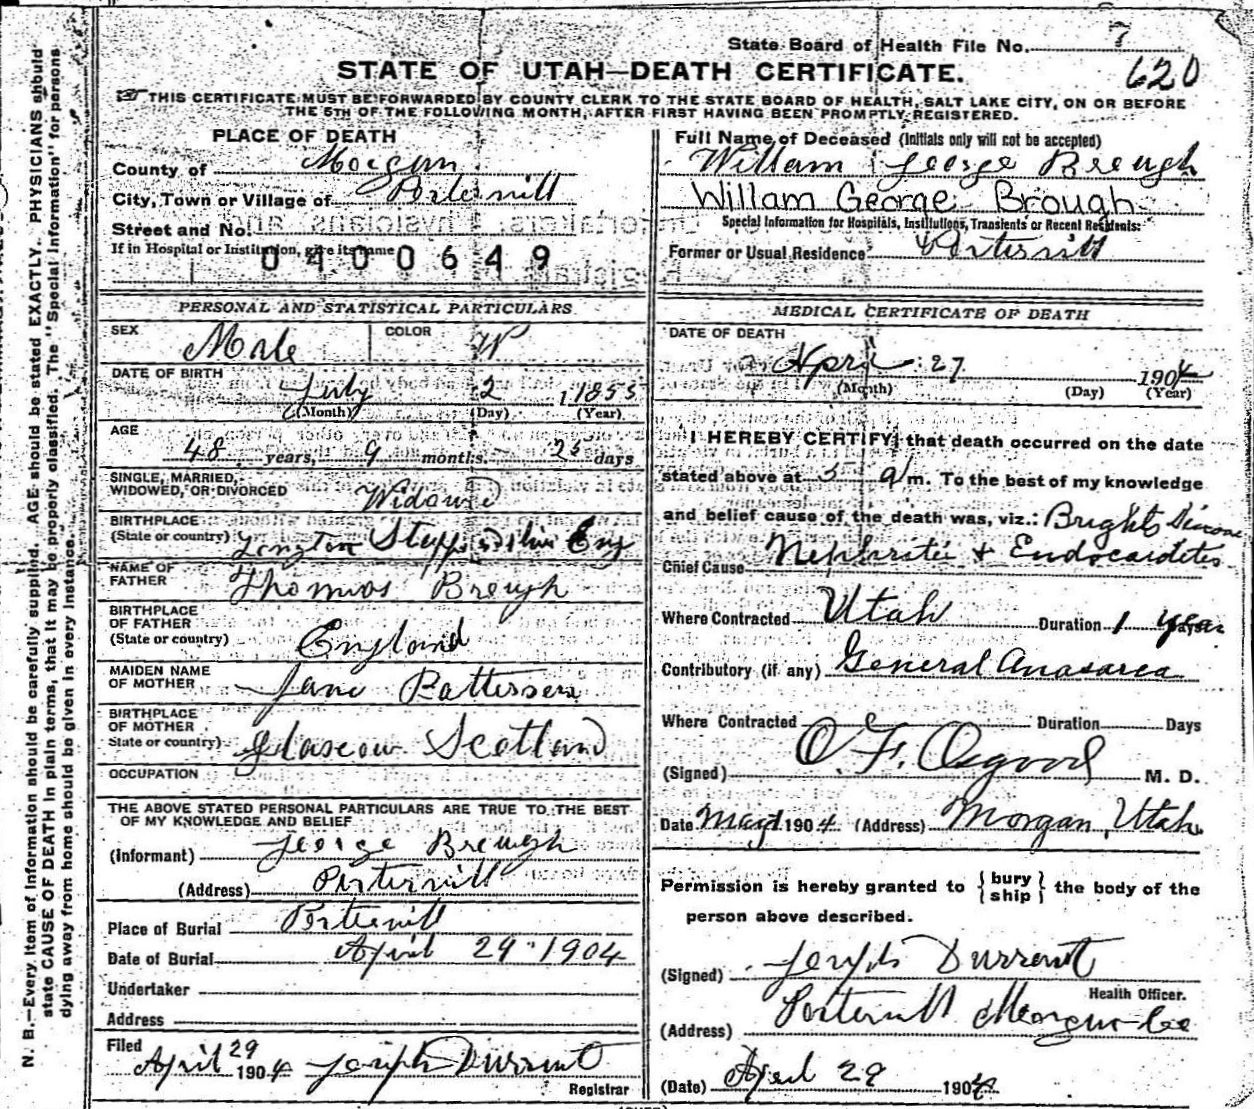 State Board of Health File No. 7
620
STATE OF UTAH—DEATH CERTIFICATE.
THIS CERTIFICATE MUST BE FORWARDED BY COUNTY CLERK TO THE STATE BOARD OF HEALTH, SALT LAKE CITY, ON OR BEFORE
THE 5TH OF THE FOLLOWING MONTH, AFTER FIRST HAVING BEEN PROMPTLY REGISTERED.
PLACE OF DEATH
County of Morgan
City, Town or Village of Porterville
Street and No.
If in Hospital or Institution, give its name
0400649
Full Name of Deceased (Initials only will not be accepted)
William George Brough
Willam George Brough
Special Information for Hospitals, Institutions, Transients or Recent Residents:
Former or Usual Residence Portervill
PERSONAL AND STATISTICAL PARTICULARS
SEX Male COLOR W
DATE OF BIRTH
July 2, 1855
(Month) (Day) (Year)
AGE
48 years, 9 months. 25 days
SINGLE, MARRIED,
WIDOWED, OR DIVORCED Widowed
BIRTHPLACE
(State or country) Eng
NAME OF
FATHER Thomas Brough
BIRTHPLACE
OF FATHER
(State or country) England
MAIDEN NAME
OF MOTHER Jane Patterson
BIRTHPLACE
OF MOTHER
State or country) Glascow Scotland
OCCUPATION
THE ABOVE STATED PERSONAL PARTICULARS ARE TRUE TO THE BEST
OF MY KNOWLEDGE AND BELIEF
(Informant) George Brough
(Address) Portervill
Place of Burial Portervill
Date of Burial April 29 1904
Undertaker
Address
Filed
April 29 1904 Joseph Durrant
Registrar
MEDICAL CERTIFICATE OF DEATH
DATE OF DEATH
April 27 1904
(Month) (Day) (Year)
I HEREBY CERTIFY, that death occurred on the date
stated above at 5 a m. To the best of my knowledge
and belief cause of the death was, viz.: Brights Disease
Chief Cause Nephritis & Endocarditis
Where Contracted Utah Duration 1 year Days
Contributory (if any) General Anasarca
Where Contracted Duration Days
(Signed) O. F. Osgood M. D.
Date May 1 1904 (Address) Morgan, Utah
Permission is hereby granted to { bury ship } the body of the
person above described.
(Signed) Joseph Durrant
Health Officer.
(Address) Portervill Morgan Co
(Date) April 29 1904
N. B.—Every item of information should be carefully supplied. AGE should be stated EXACTLY. PHYSICIANS should
state CAUSE OF DEATH in plain terms, that it may be properly classified. The "Special Information" for persons
dying away from home should be given in every instance.